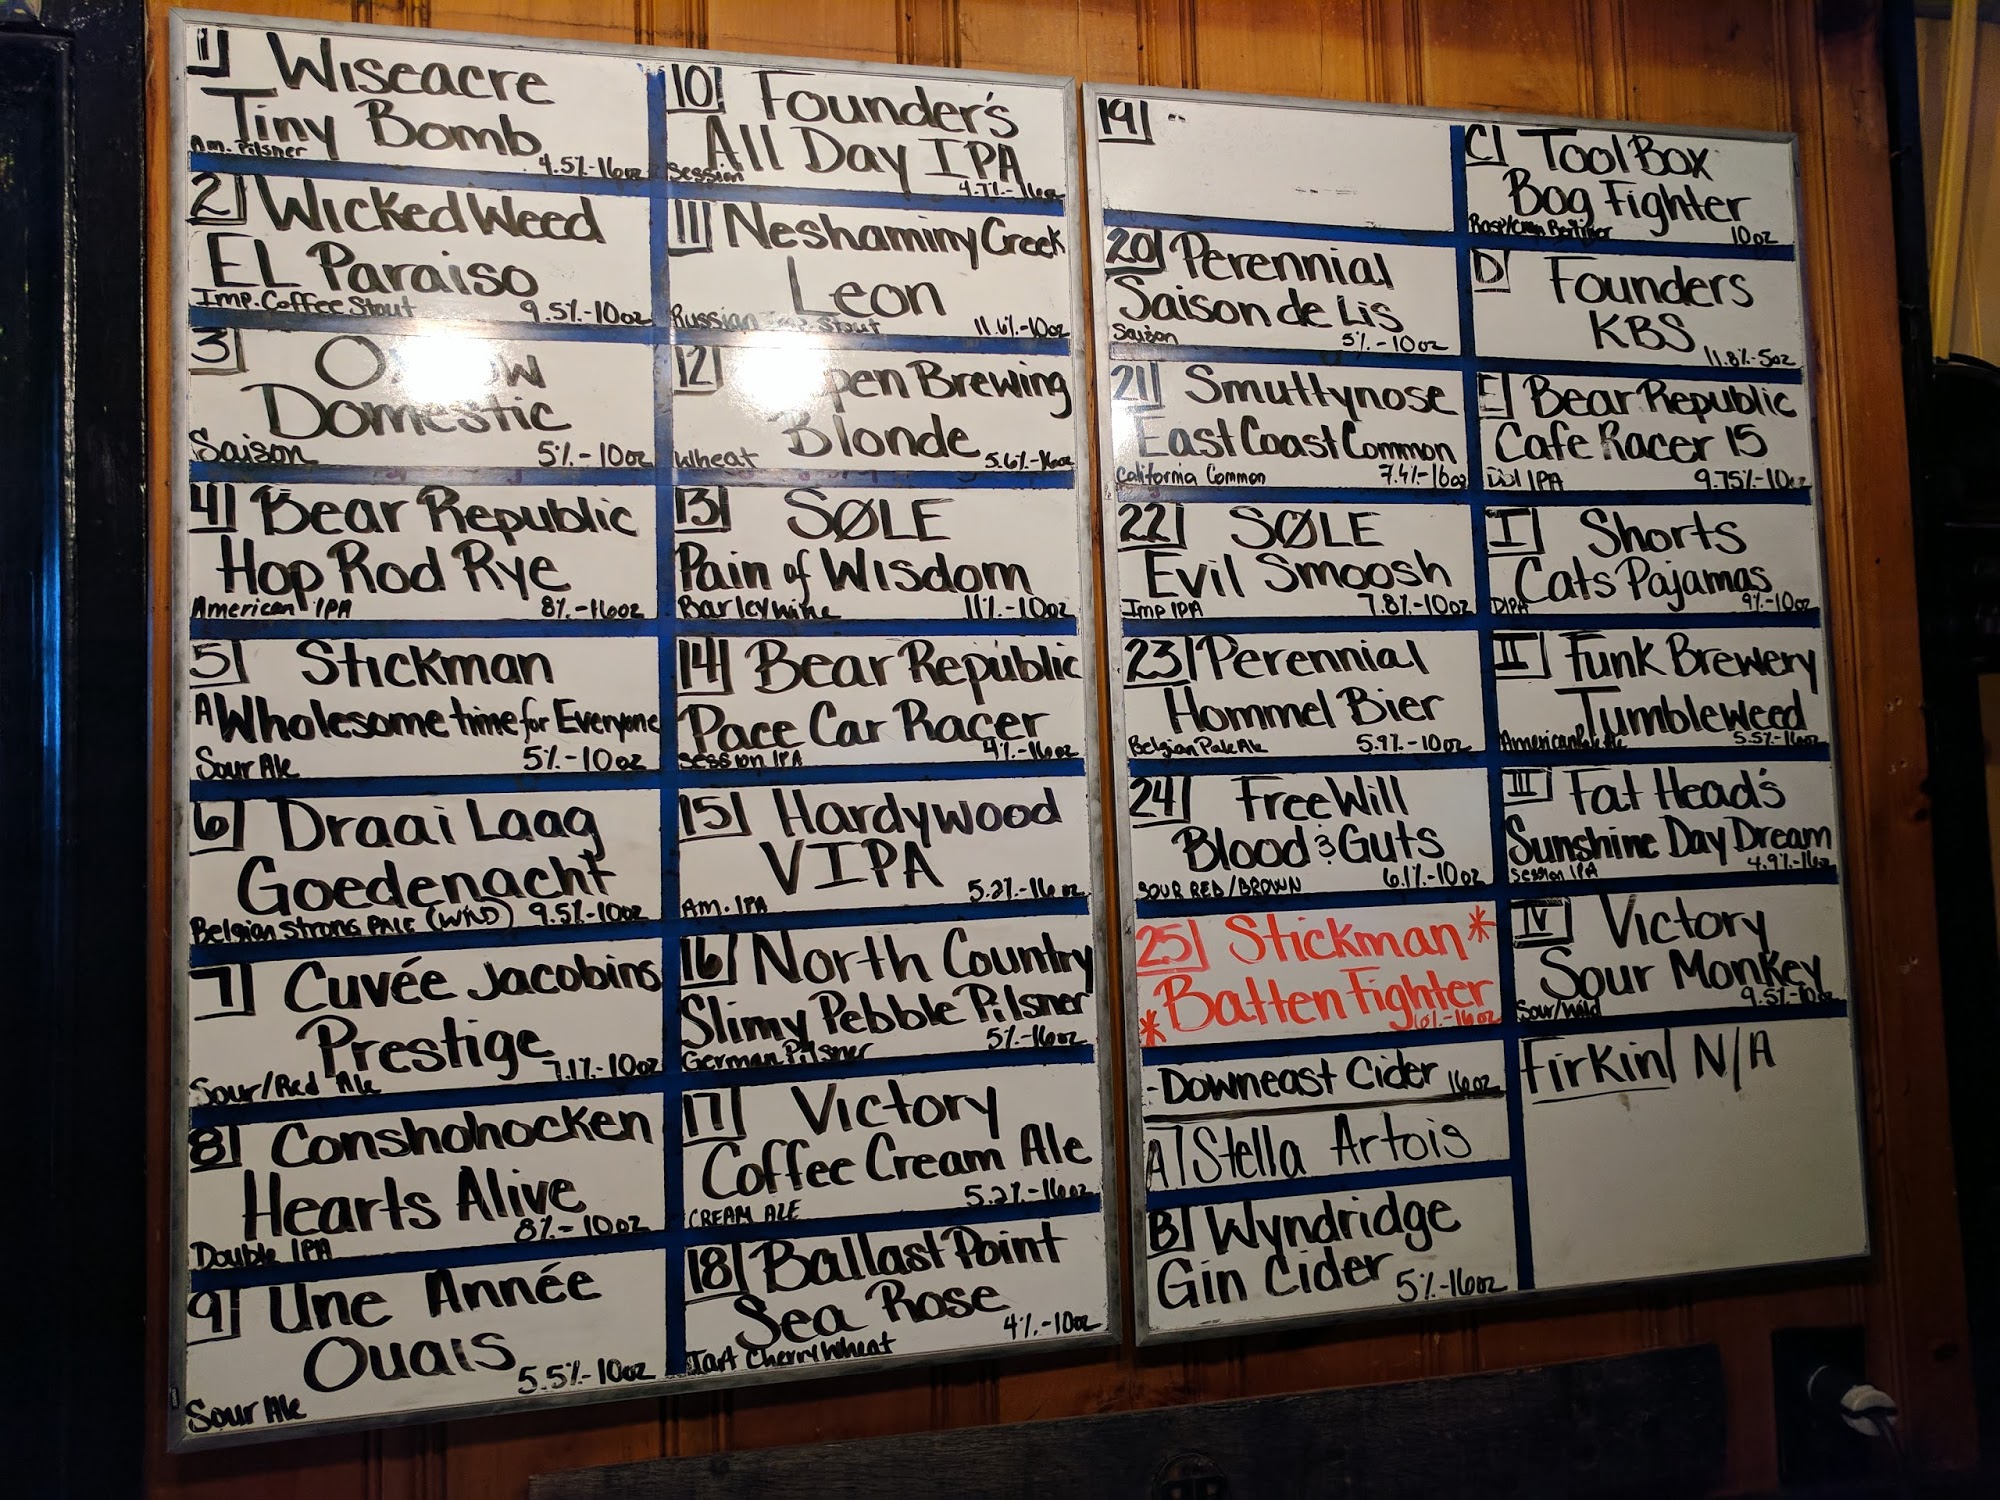 1 Wiseacre
Tiny Bomb
Am. Pilsner 4.5%-16oz
2 Wicked Weed
EL Paraiso
Imp. Coffee Stout 9.5%-10oz
3
Domestic
Saison 5%-10oz
4 Bear Republic
Hop Rod Rye
American IPA 8%-16oz
5 Stickman
A Wholesome time for Everyone
Sour Ale 5%-10oz
6 Draai Laag
Goedenacht
Belgian Strong PALE (WILD) 9.5%-10oz
7 Cuvée Jacobins
Prestige
Sour/Red Ale 7.1%-10oz
8 Conshohocken
Hearts Alive
Double IPA 8%-10oz
9 Une Année
Ouais
Sour Ale 5.5%-10oz
10 Founder's
All Day IPA
Session 4.7%-16oz
11 Neshaminy Creek
Leon
Russian Imp. Stout 11.6%-10oz
12 Brewing
Blonde
Wheat 5.6%-16oz
13 SØLE
Pain of Wisdom
Barleywine 11%-10oz
14 Bear Republic
Pace Car Racer
Session IPA 4%-16oz
15 Hardywood
VIPA
Am. IPA 5.2%-16oz
16 North Country
Slimy Pebble Pilsner
German Pilsner 5%-16oz
17 Victory
Coffee Cream Ale
CREAM ALE 5.2%-16oz
18 Ballast Point
Sea Rose
Tart Cherry Wheat 4%-10oz
19
20 Perennial
Saison de Lis
Saison 5%-10oz
21 Smuttynose
East Coast Common
California Common 7.4%-16oz
22 SØLE
Evil Smoosh
Imp IPA 7.8%-10oz
23 Perennial
Hommel Bier
Belgian Pale Ale 5.9%-10oz
24 Free Will
Blood & Guts
SOUR RED/BROWN 6.1%-10oz
25 Stickman *
* Batten Fighter
6%-16oz
-Downeast Cider 16oz
A Stella Artois
B Wyndridge
Gin Cider 5%-16oz
C Tool Box
Bog Fighter
10oz
D Founders
KBS
11.8%-5oz
E Bear Republic
Cafe Racer 15
Dbl IPA 9.75%-10oz
I Shorts
Cats Pajamas
DIPA 9%-10oz
II Funk Brewery
Tumbleweed
American Pale Ale 5.5%-16oz
III Fat Head's
Sunshine Day Dream
Session IPA 4.9%-16oz
IV Victory
Sour Monkey
Sour/Wild 9.5%-10oz
Firkin N/A